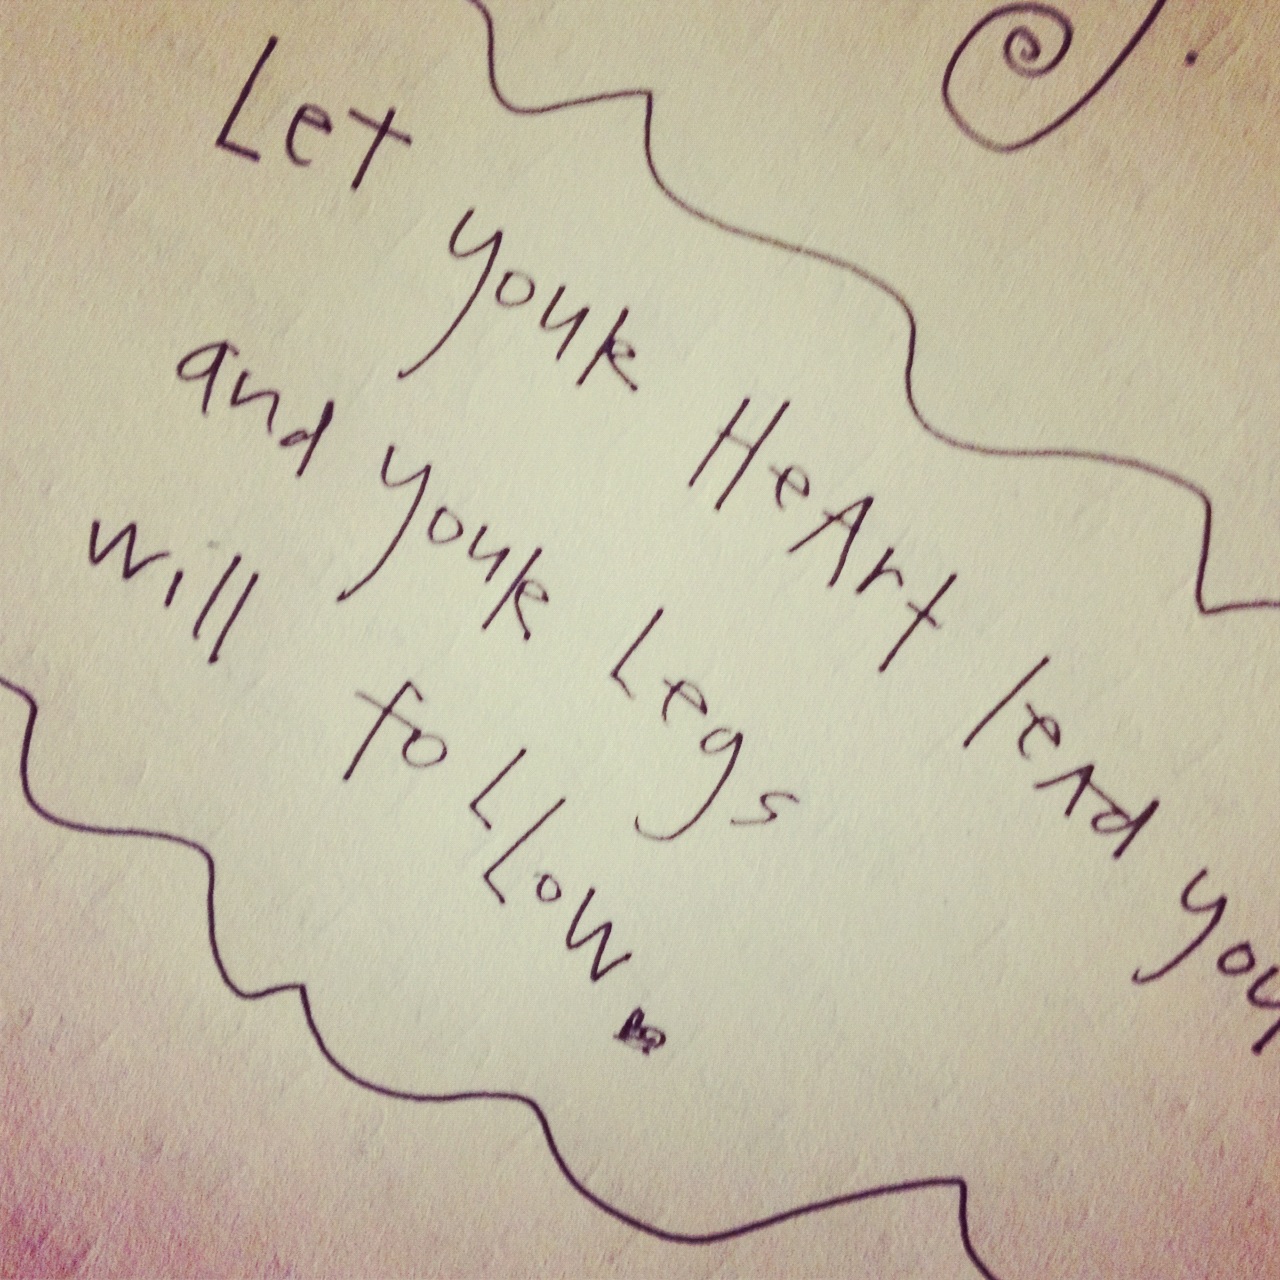 Let your HeArt leAd you
and your Legs
will foLLow.